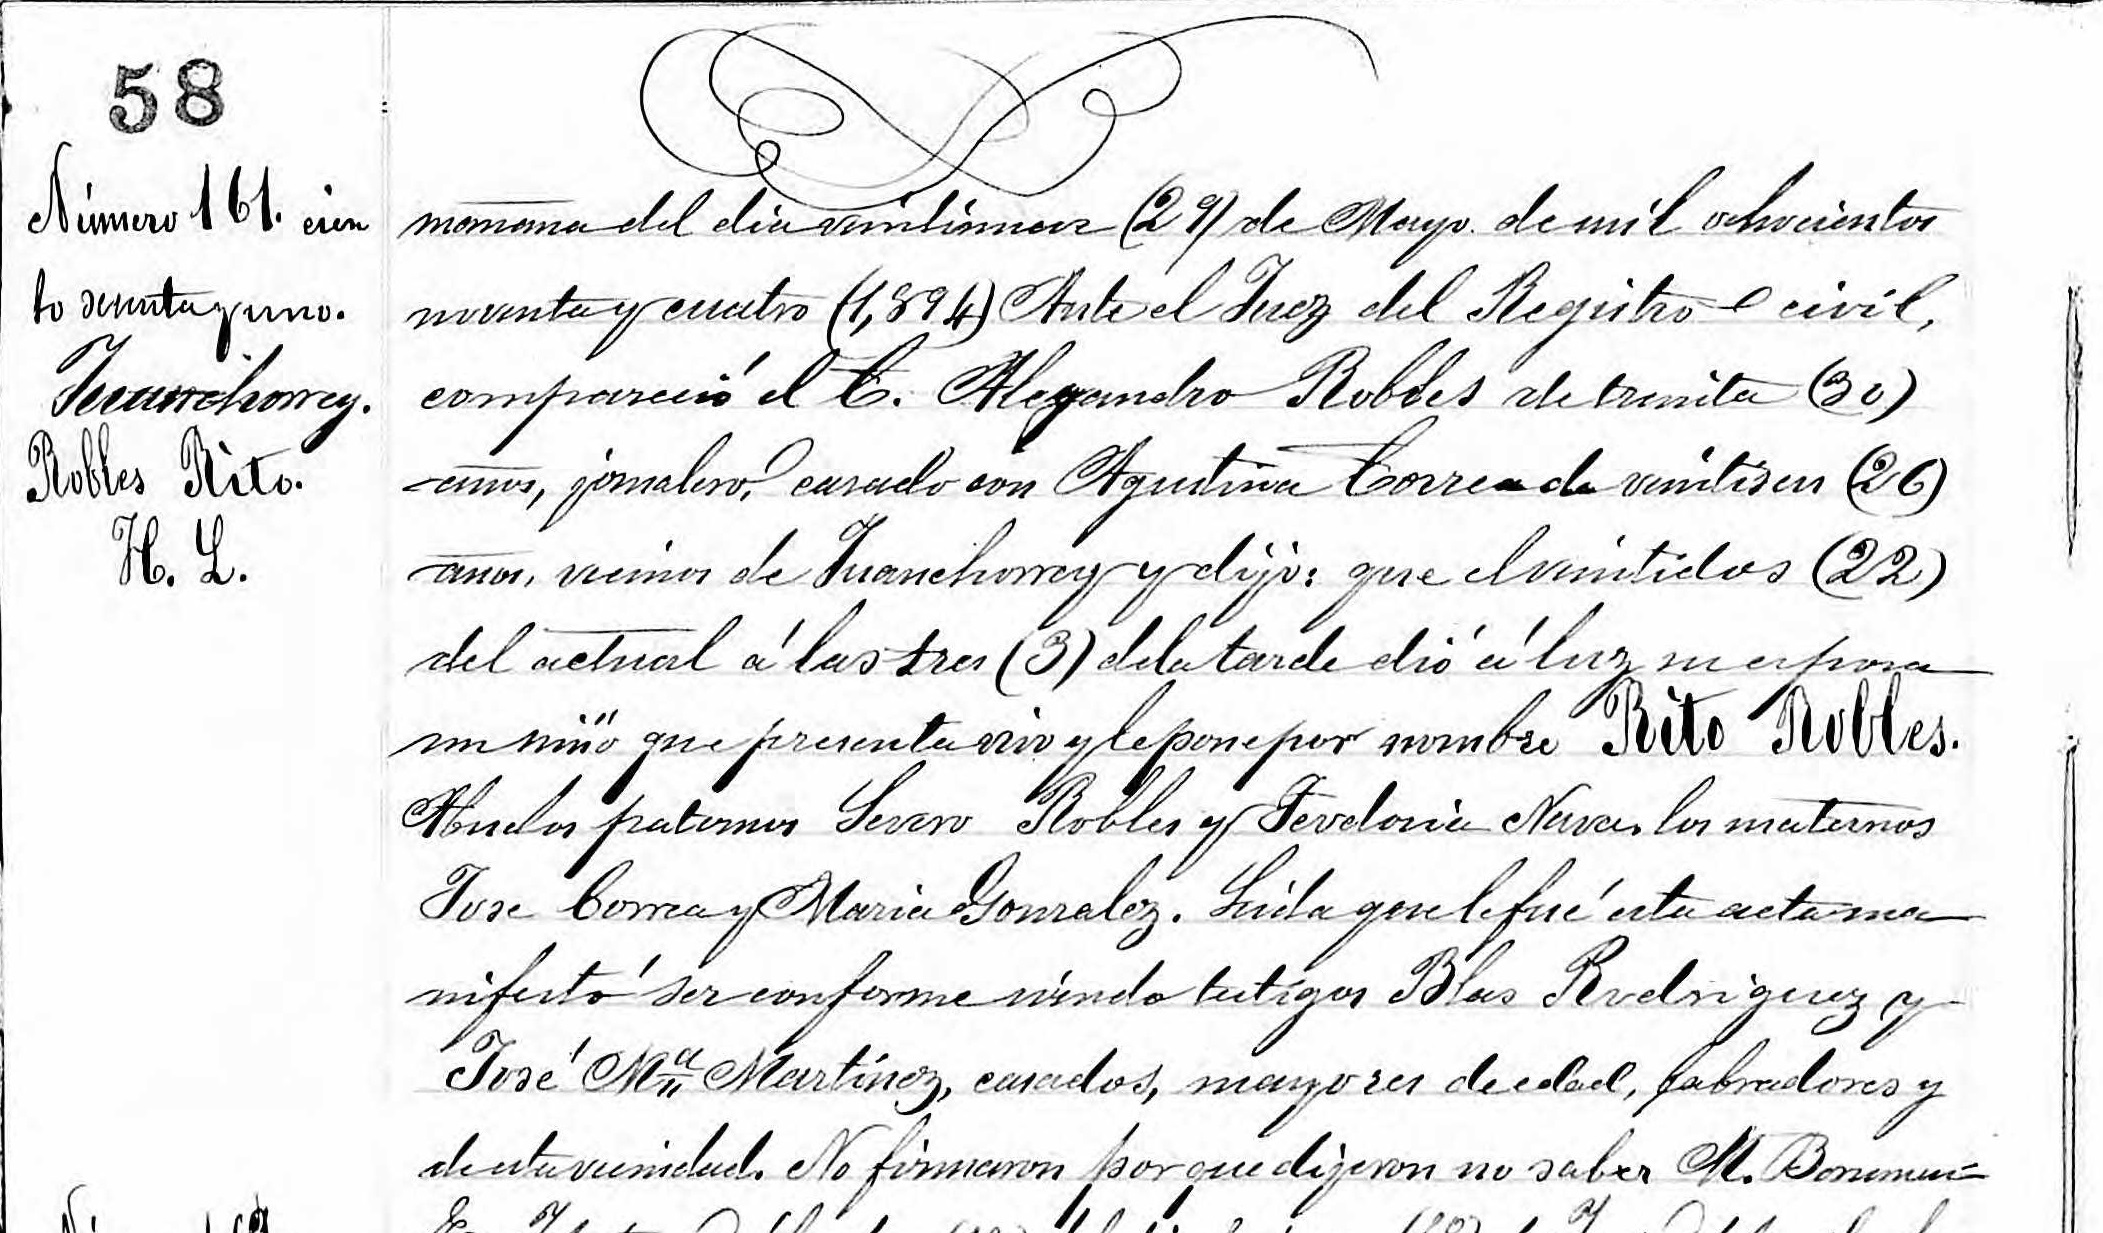 58
Número 161. cien
to sesenta y uno.
Juanchorrey.
Robles Rito.
H. L.
mañana del dia veintinueve (29) de Mayo. de mil ochocientos
noventa y cuatro (1,894) Ante el Juez del Registro civil,
compareció el C. Alejandro Robles de treinta (30)
años, jornalero, casado con Agustina Correa de veintiseis (26)
años, vecinos de Juanchorrey y dijo: que el veintidos (22)
del actual á las tres (3) de la tarde dió á luz su esposa
un niño que presenta vivo y le pone por nombre Rito Robles.
Abuelos paternos Severo Robles y Teodocia Nava, los maternos
Jose Correa y Maria Gonzalez. Leida que le fué esta acta ma
nifestó ser conforme siendo testigos Blas Rodriguez y
José Ma. Martínez, casados, mayores de edad, labradores y
de esta vecindad. No firmaron porque dijeron no saber M.